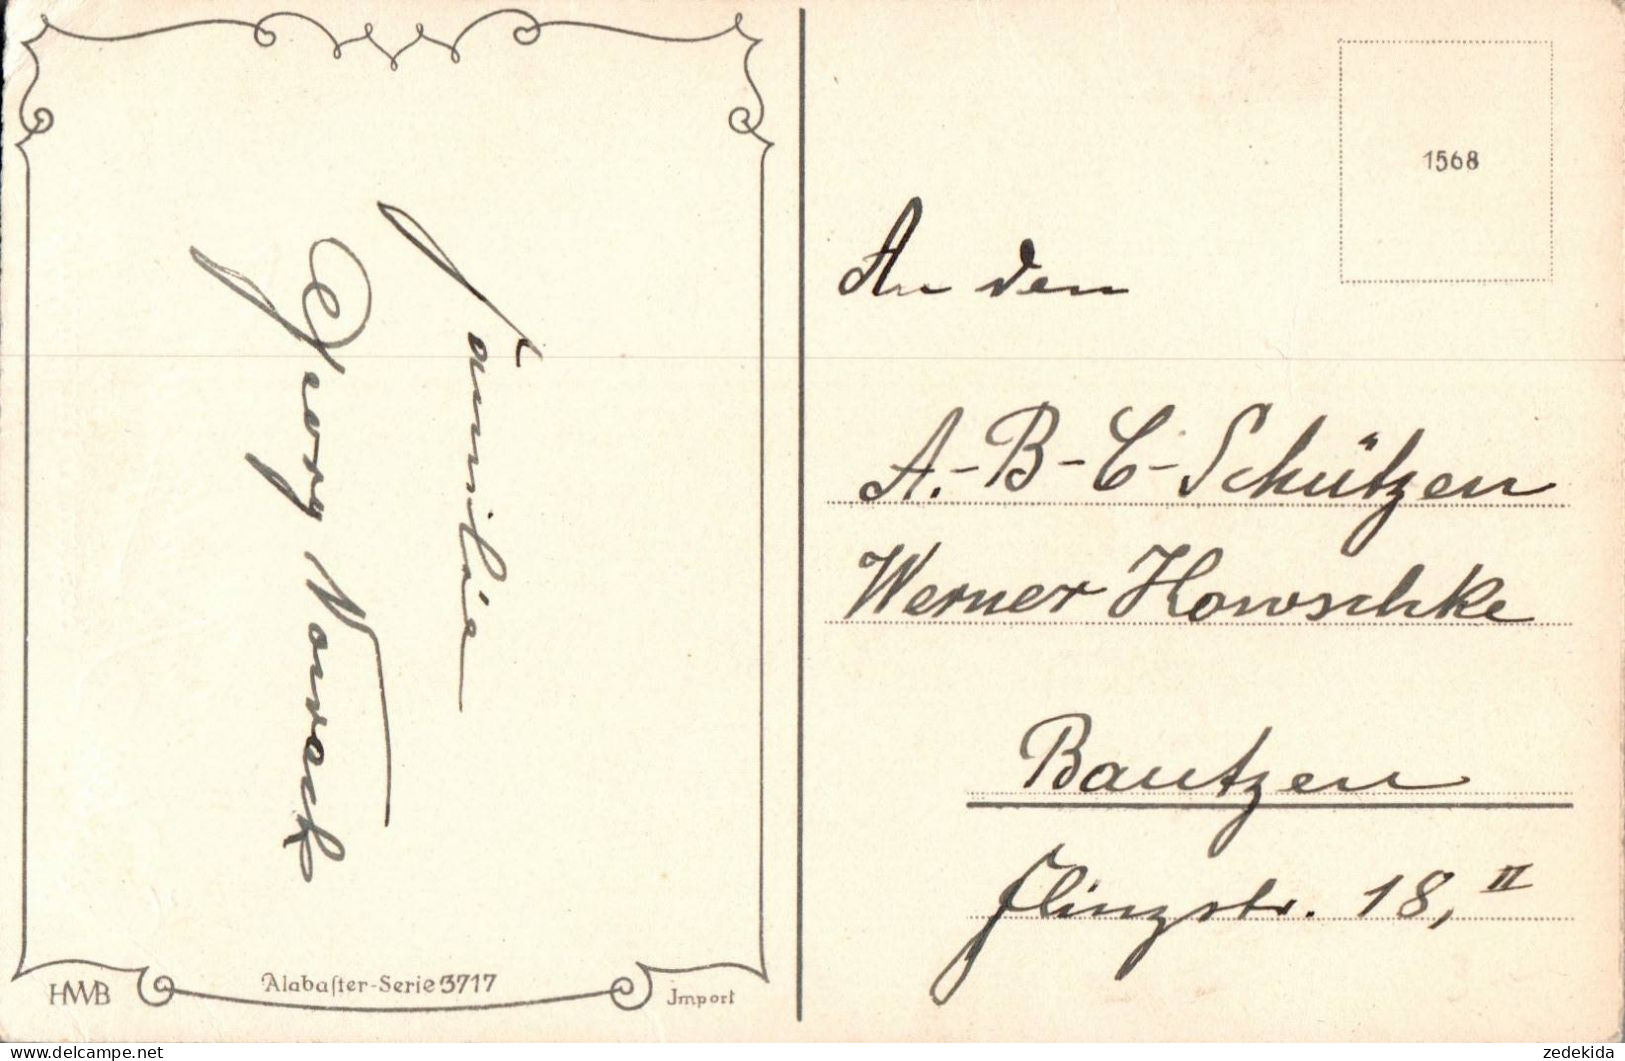 Familie
Georg Nowack
HWB
Alabaſter-Serie 3717
Jmport
1568
An den
A.-B-C-Schützen
Werner Howschke
Bautzen
Flinzstr. 18, II
zedekida